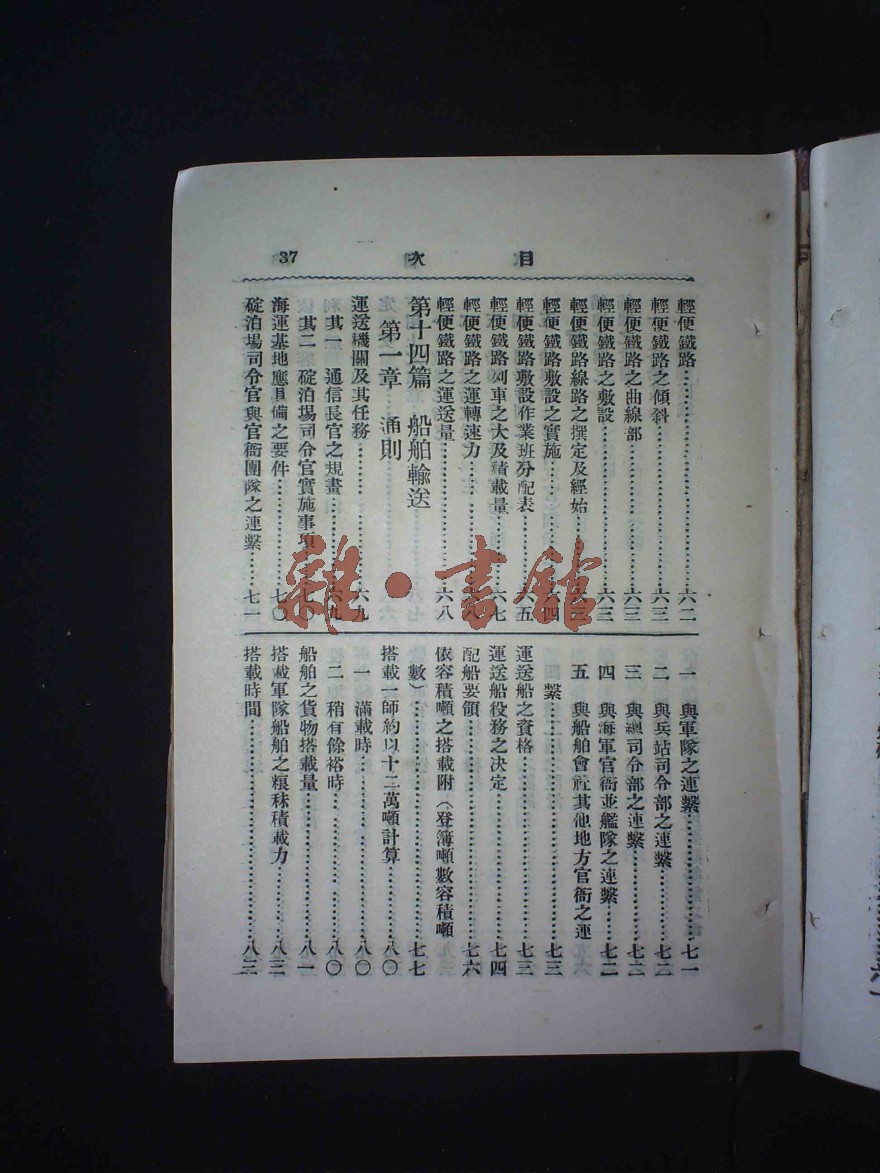 目次 37
輕便鐵路……六二
輕便鐵路之傾斜……六三
輕便鐵路之曲線部……六三
輕便鐵路之敷設……六三
輕便鐵路線路之撰定及經始……六三
輕便鐵路敷設之實施……六四
輕便鐵路敷設作業班分配表……六五
輕便鐵路列車之大及積載量……六七
輕便鐵路之運轉速力……六八
輕便鐵路之運送量……六八
第十四篇 船舶輸送
第一章 通則
運送機關及其任務……六九
其一 通信長官之規畫……六九
其二 碇泊場司令官實施事項……七〇
海運基地應具備之要件……七〇
碇泊場司令官與官衙團隊之連繫……七一
一 與軍隊之連繫……七一
二 與兵站司令部之連繫……七二
三 與總司令部之連繫……七二
四 與海軍官衙並艦隊之連繫……七二
五 與船舶會社其他地方官衙之連
繫……七三
運送船之資格……七三
運送船役務之決定……七四
配船要領……七六
依容積噸之搭載附（登簿噸數容積噸
數）……七七
搭載一師約以十二萬噸計算……八〇
一 滿載時……八〇
二 稍有餘裕時……八〇
船舶之貨物搭載量……八一
搭載軍隊船舶之糧秣積載力……八三
搭載時間……八三
雜·書館